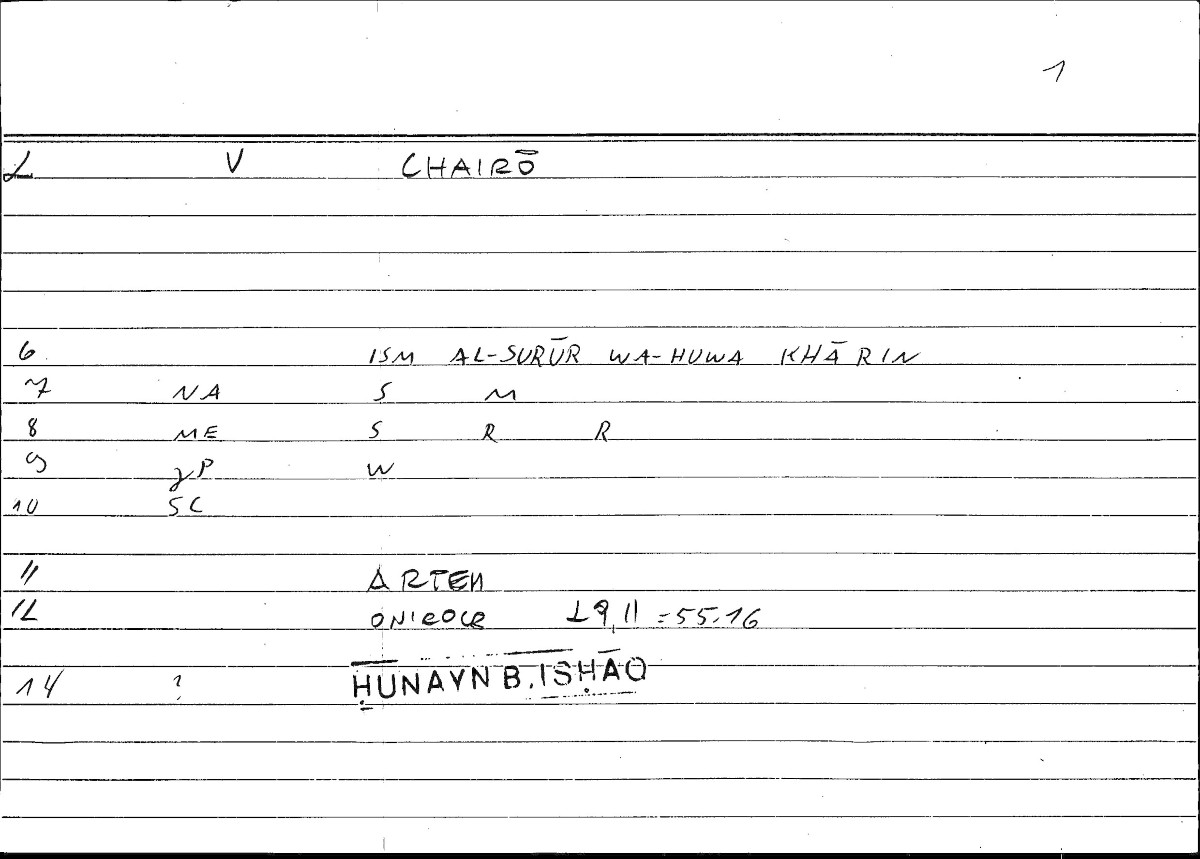 1
L V CHAIRŌ
6 ISM AL-SURŪR WA-HUWA KHĀRIN
7 NA S M
8 ME S R R
9 γP W
10 SC
11 ARTEM
12 ONIROCR 19,11 = 55.16
14 ? ḤUNAYN B. ISḤĀQ